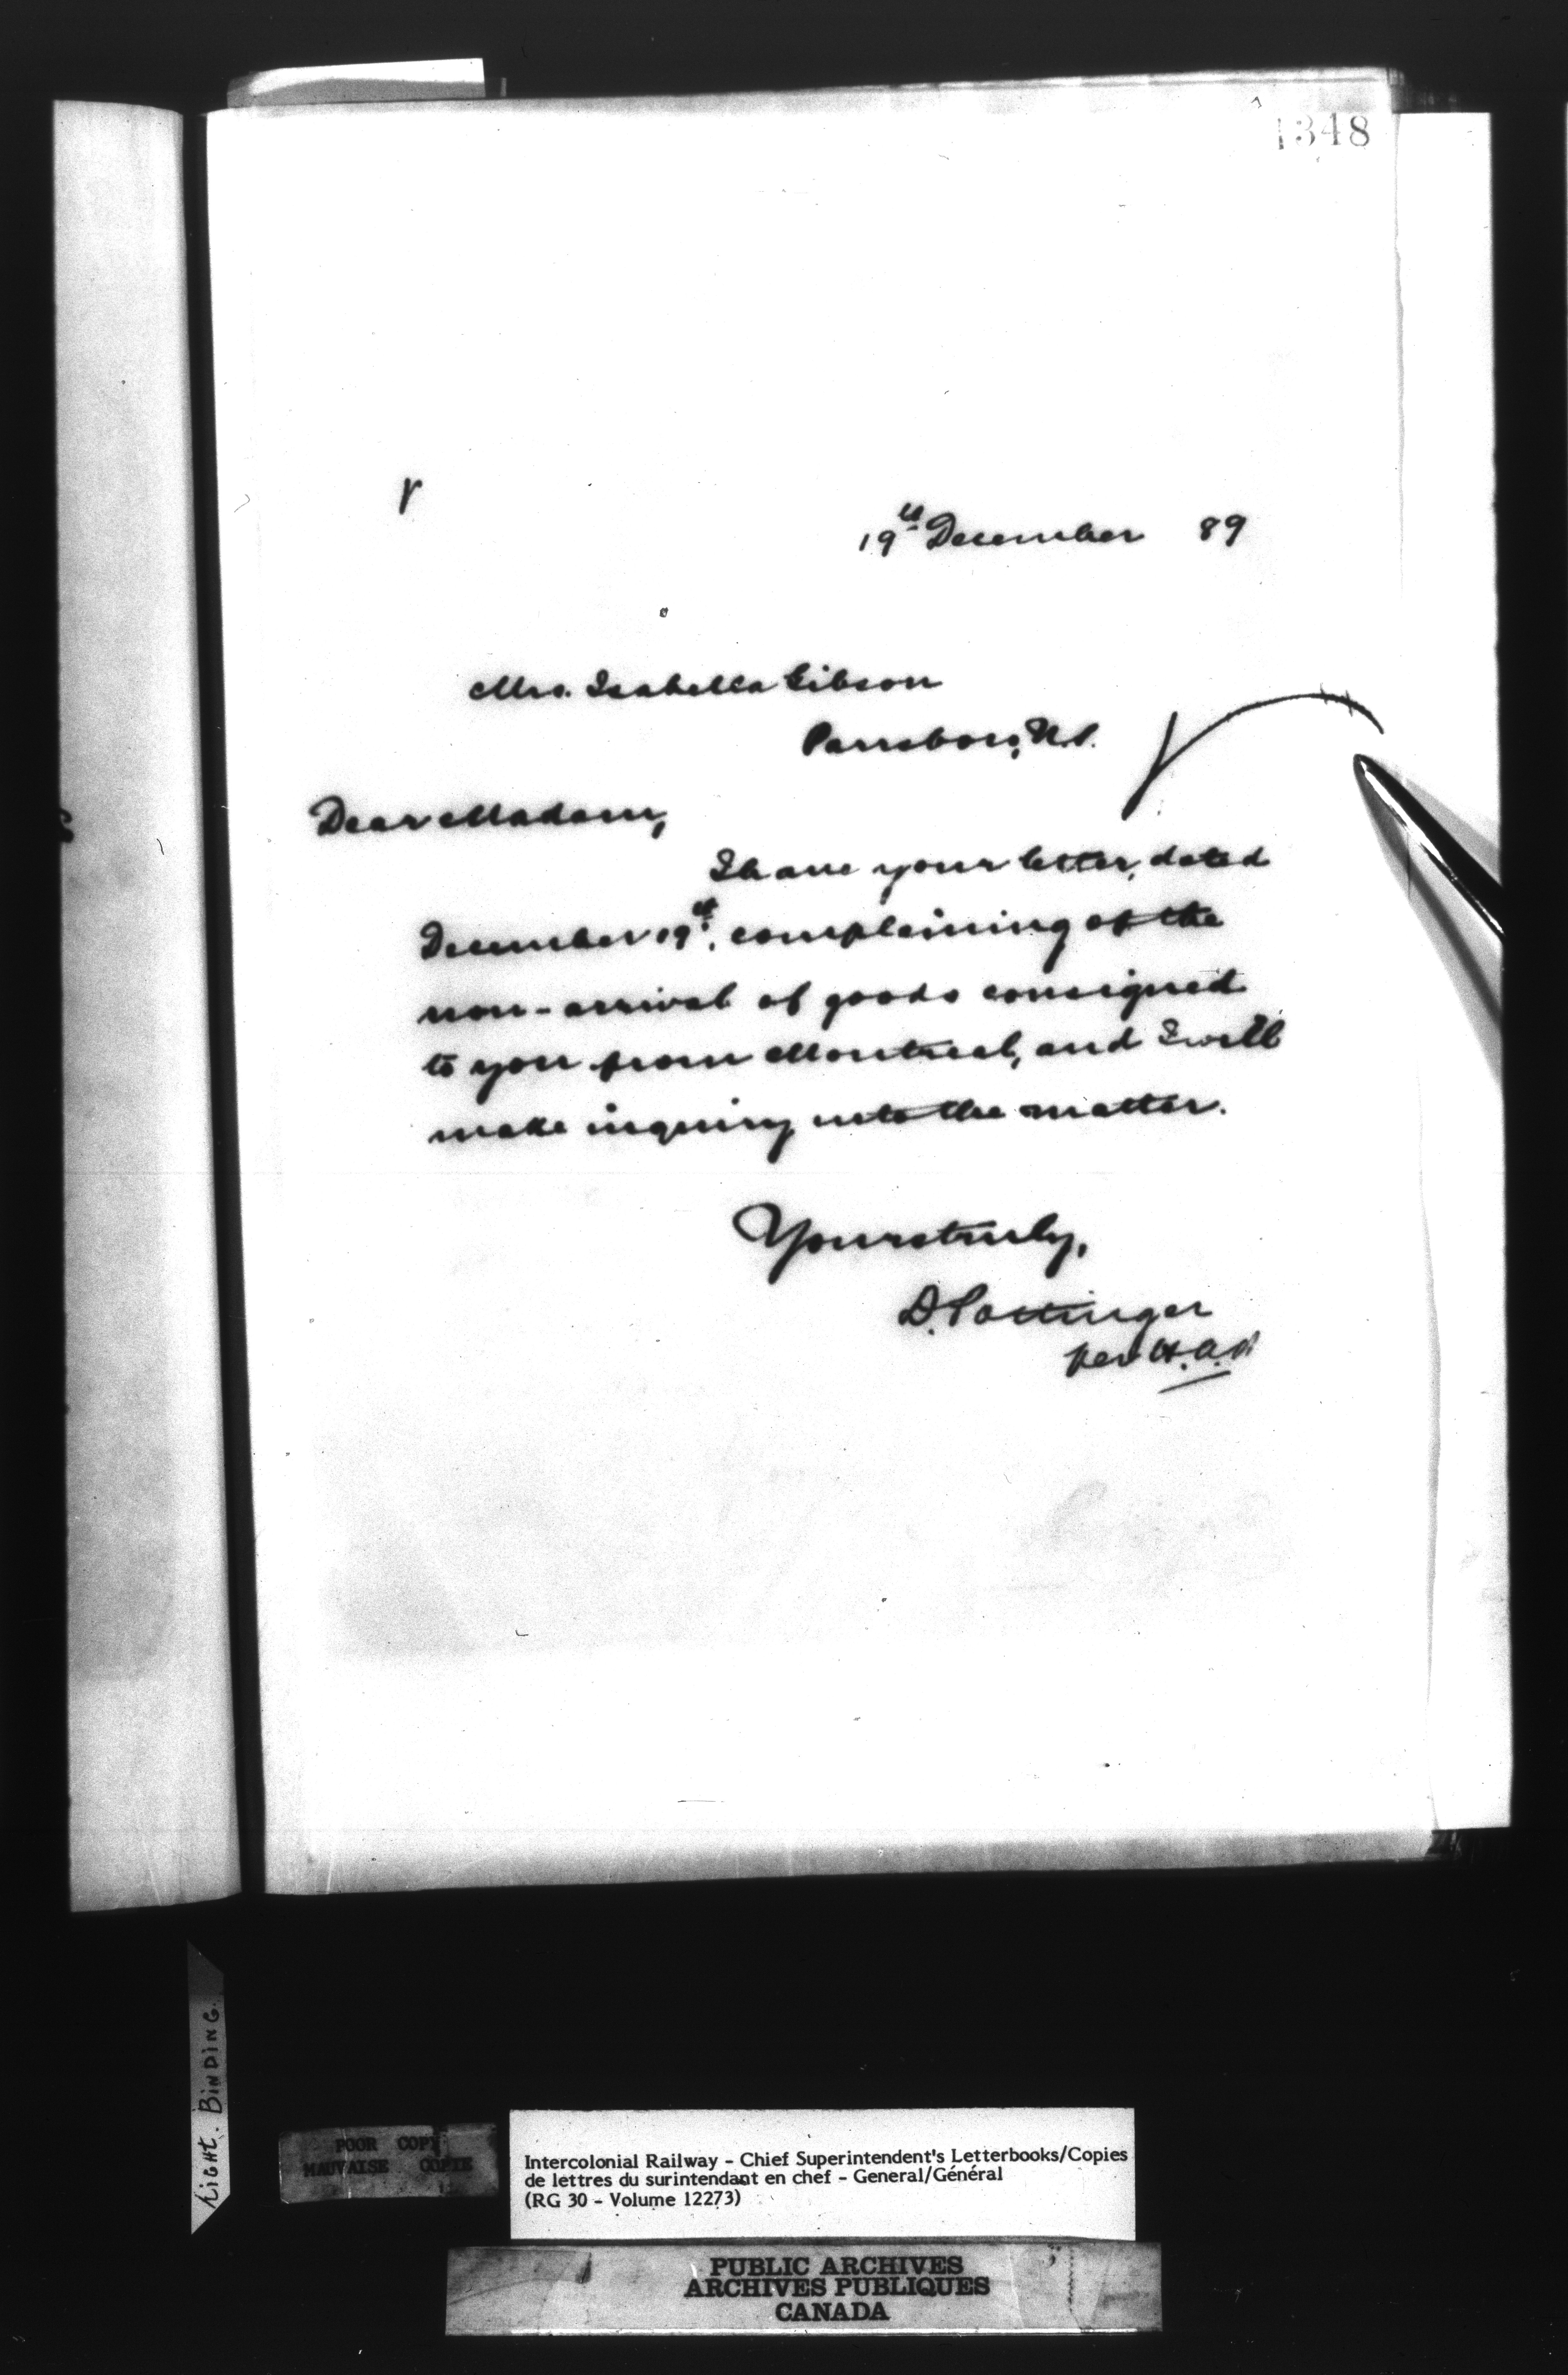 1348
19th December 89
Mrs. Isabella Gibson
Parrsboro, N.S.
Dear Madam,
I have your letter, dated
December 19th, complaining of the
non-arrival of goods consigned
to you from Montreal, and I will
make inquiry into the matter.
Yours truly,
D. Pottinger
per H.A.P.
Tight. Binding.
POOR COPY
MAUVAISE COPIE
Intercolonial Railway - Chief Superintendent's Letterbooks/Copies
de lettres du surintendant en chef - General/Général
(RG 30 - Volume 12273)
PUBLIC ARCHIVES
ARCHIVES PUBLIQUES
CANADA